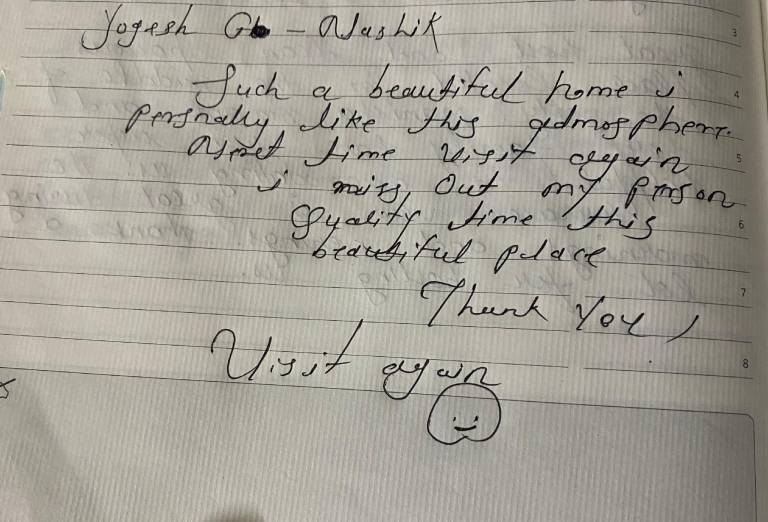 Yogesh G - Nashik
Such a beautiful home i
persnally like this admospherr.
Next time visit again
i miss out my person
quality time this
beautiful place
Thank you
Visit again
3
4
5
6
7
8